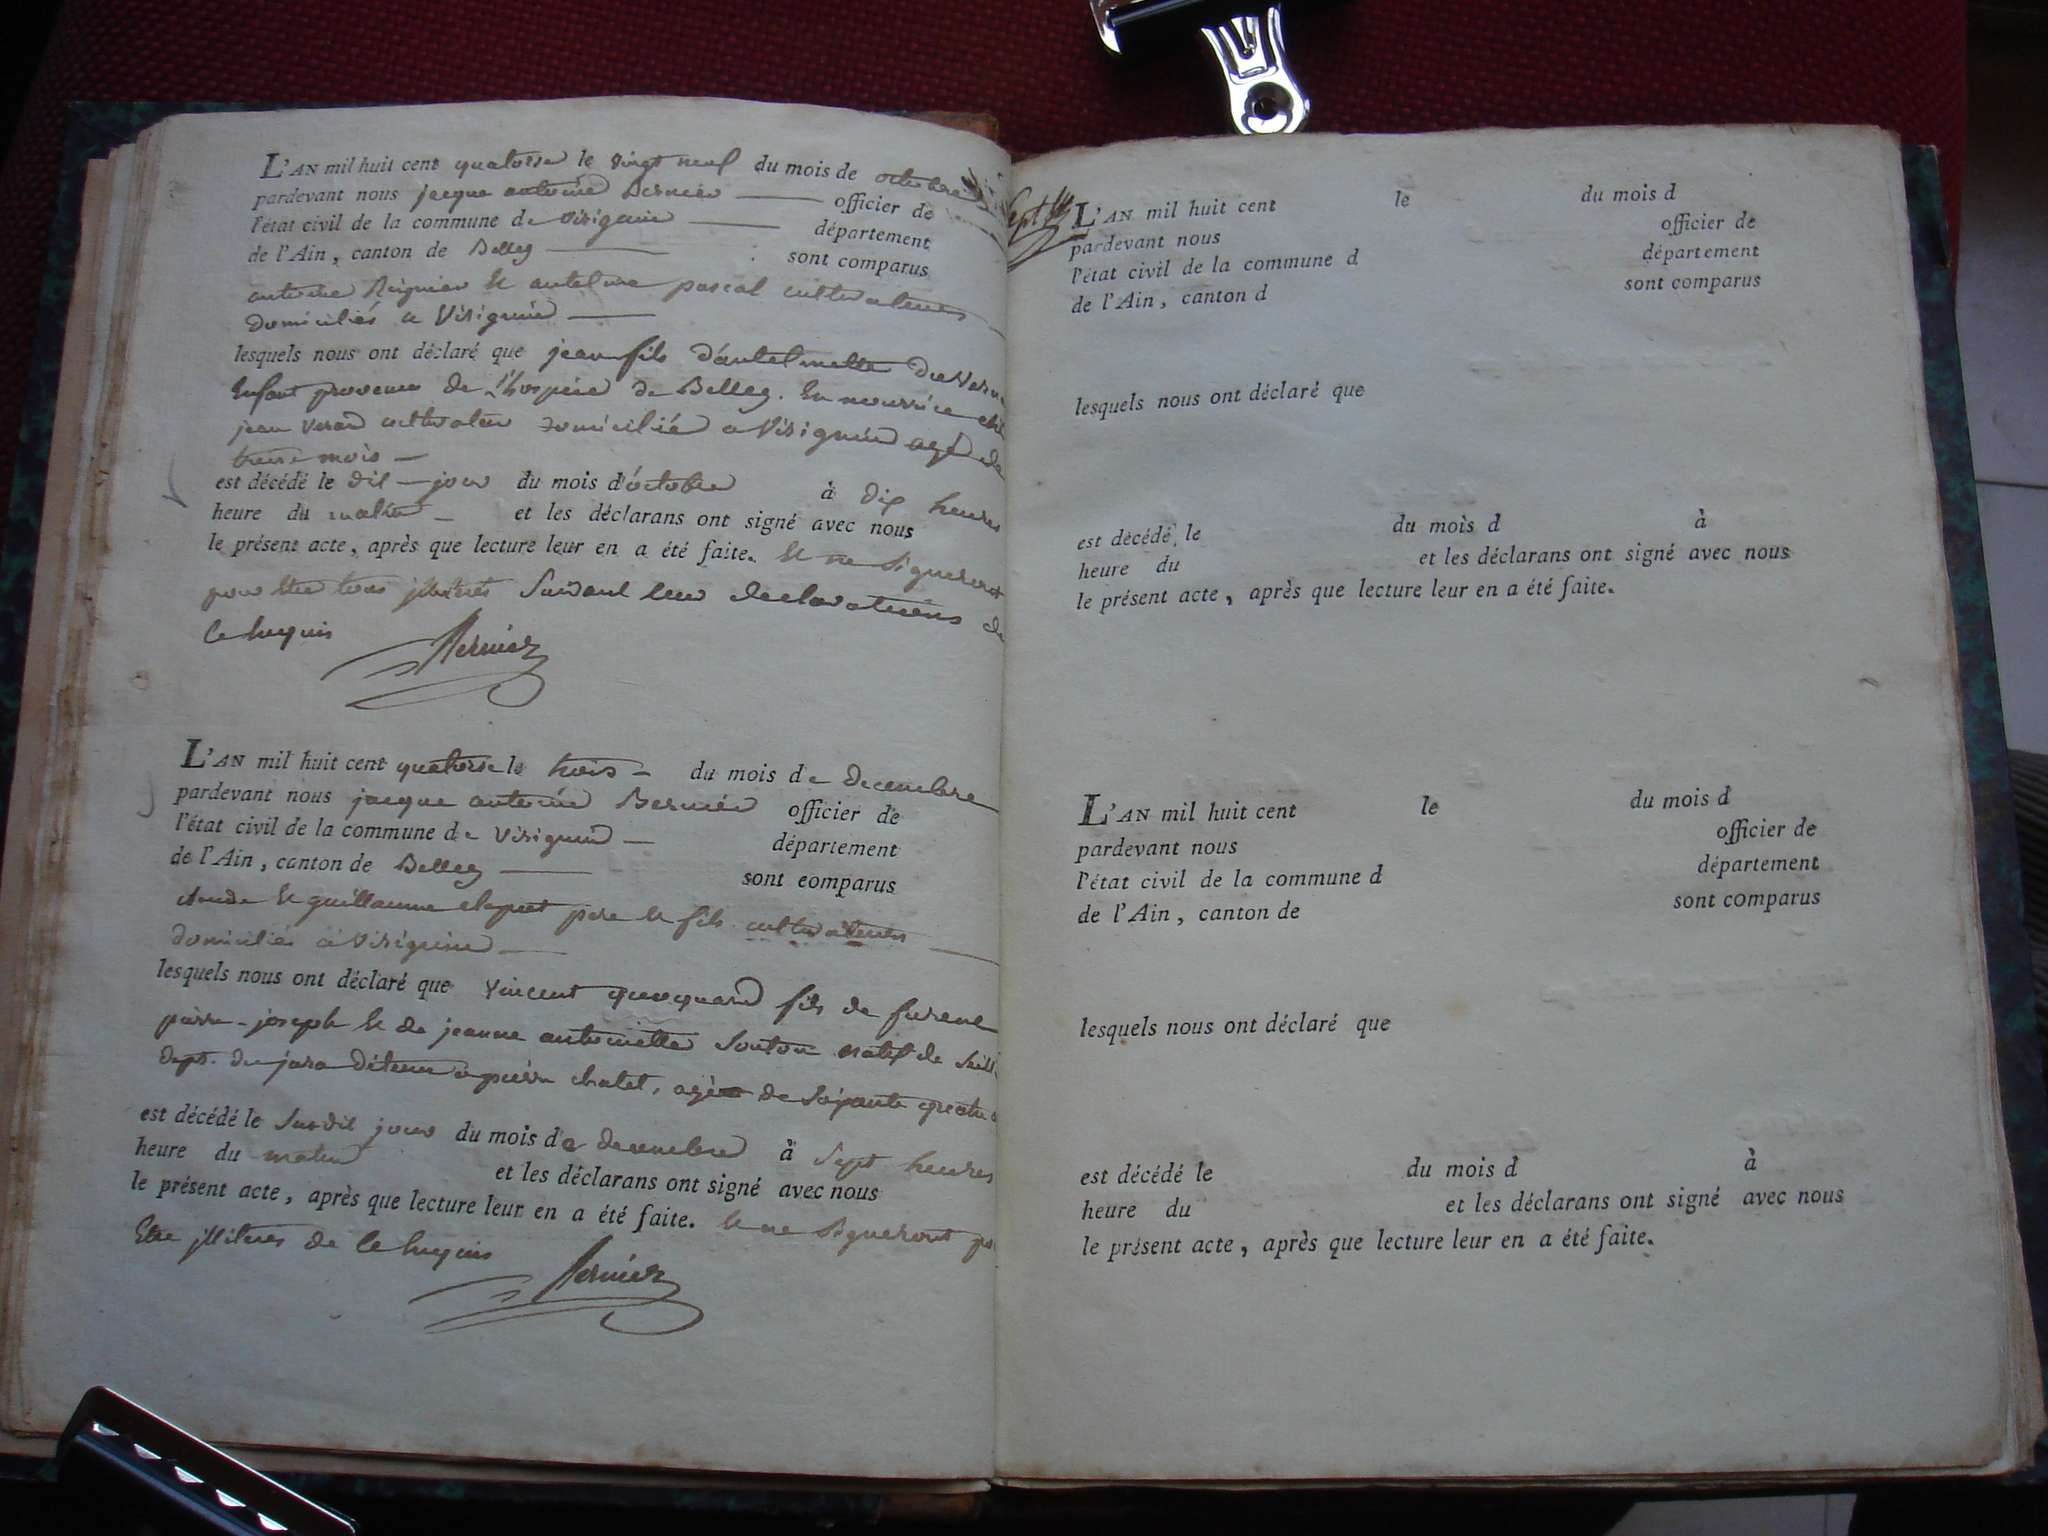 L'AN mil huit cent quatorse le vingt neuf du mois de octobre
pardevant nous jacque antoine Bernier officier de
l'état civil de la commune de Virignin département
de l'Ain, canton de Belley sont comparus
antoine et antelme pascal cultivateurs
domiciliés a Virignin
lesquels nous ont déclaré que jean fils d'antelmette
Enfant provenu de l'hospice de Belley. En nourrice ché
jean cultivateur domicilié a Virignin agé de
treise mois
est décédé le dit jour du mois d'octobre à dix heures
heure du matin et les déclarans ont signé avec nous
le présent acte, après que lecture leur en a été faite. Et ne signeront
pour être tous illitérés suivant leur declarations de
ce requis Bernier
L'AN mil huit cent quatorse le trois du mois de decembre
pardevant nous jacque antoine Bernier officier de
l'état civil de la commune de Virignin département
de l'Ain, canton de Belley sont comparus
claude et guillaume pere et fils cultivateurs
domiciliés a Virignin
lesquels nous ont déclaré que Vincent fils de
pierre-joseph et de jeanne antoinette natif de
dept. du jura détenu à pierre chatel, agé de soixante quatre
est décédé le susdit jour du mois de decembre à sept heures
heure du matin et les déclarans ont signé avec nous
le présent acte, après que lecture leur en a été faite. et ne signeront
Etre illitérés de ce requis Bernier
Sept
L'AN mil huit cent le du mois d
pardevant nous officier de
l'état civil de la commune d département
de l'Ain, canton d sont comparus
lesquels nous ont déclaré que
est décédé le du mois d à
heure du et les déclarans ont signé avec nous
le présent acte, après que lecture leur en a été faite.
L'AN mil huit cent le du mois d
pardevant nous officier de
l'état civil de la commune d département
de l'Ain, canton de sont comparus
lesquels nous ont déclaré que
est décédé le du mois d à
heure du et les déclarans ont signé avec nous
le présent acte, après que lecture leur en a été faite.